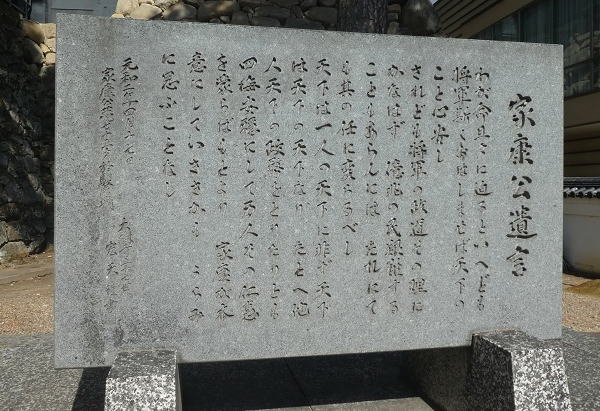 家康公遺言
わが命旦夕に迫るといへども
将軍斯くおはしませば天下の
こと心安し
されども将軍の政道その理に
かなはず 億兆の民艱難する
こともあらんには たれにても
其の任に変らるべし
天下は一人の天下に非ず天下
は天下の天下なり たとへ他
人天下の政務をとりたりとも
四海安穏にして万人その仁恵
を蒙らばもとより 家康が本
意にしていささかも うらみ
に思ふことなし
元和二年四月十七日
家康公